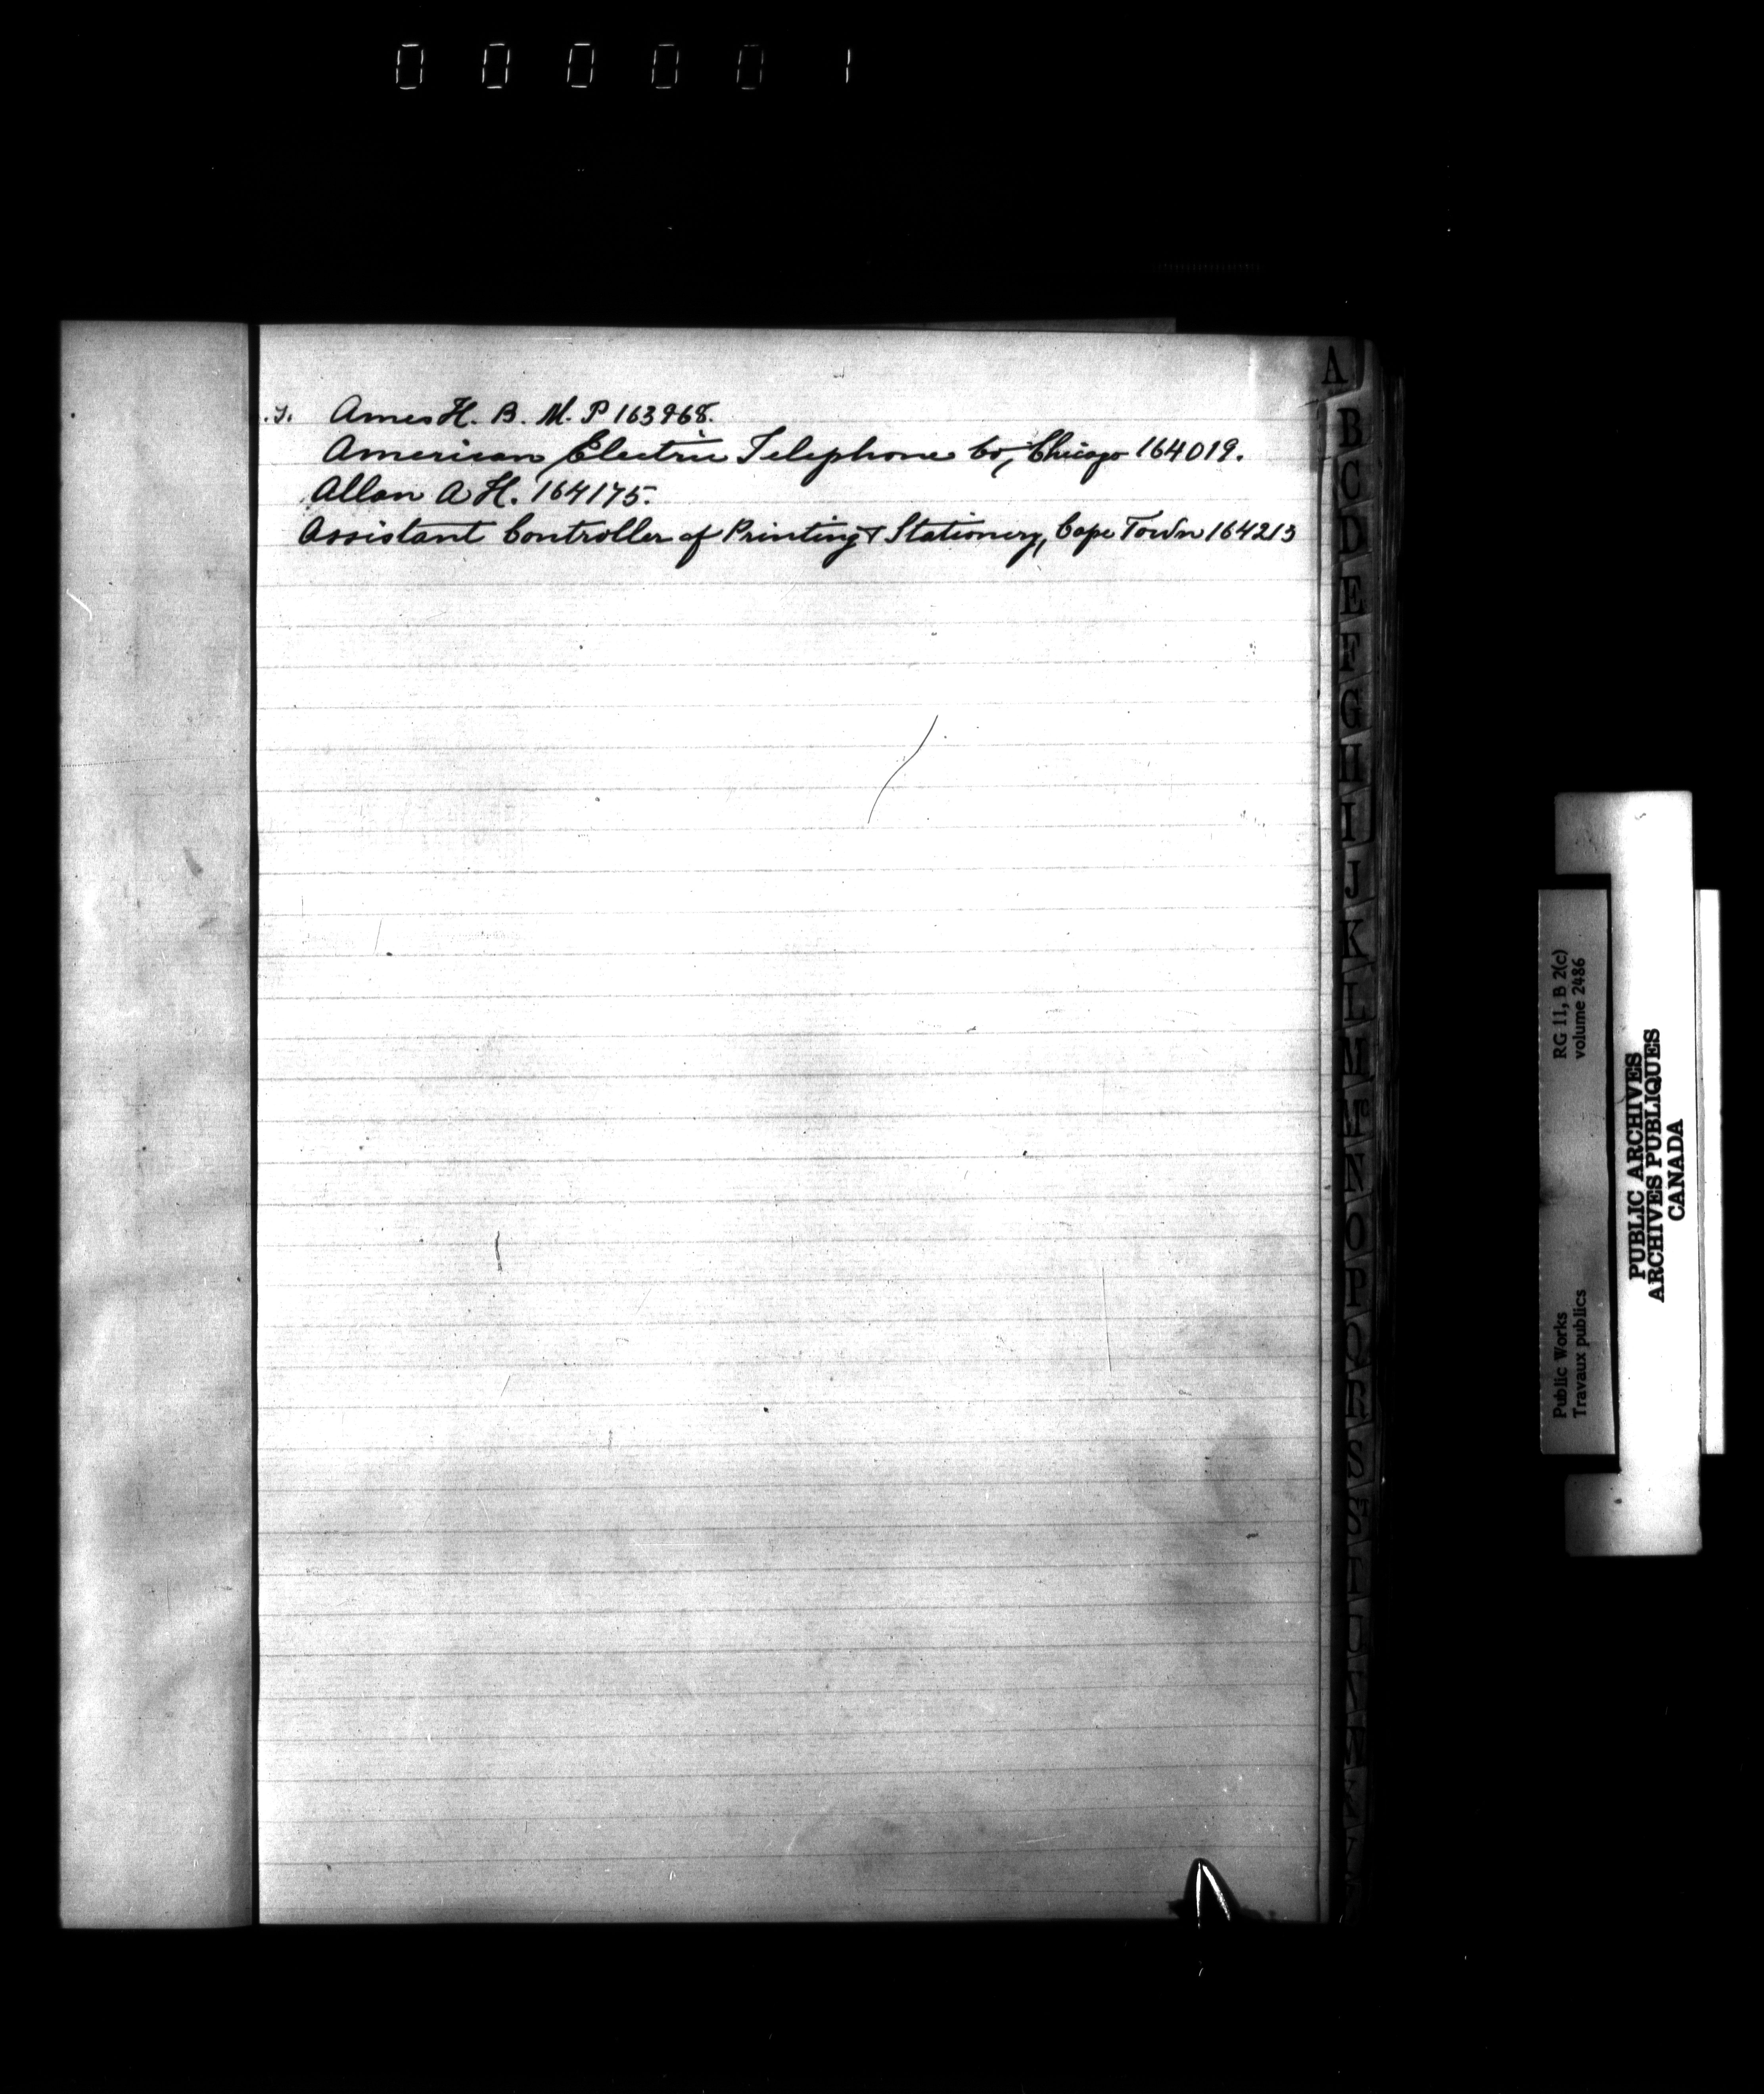 000001
Ames H. B. M. P 163968.
American Electric Telephone Co, Chicago 164019.
Allan A H. 164175.
Assistant Controller of Printing & Stationery, Cape Town 164213
A
B
C
D
E
F
G
H
I
J
K
L
M
Mc
N
O
P
Q
R
S
ST
T
U
V
W
Public Works
Travaux publics
RG 11, B 2(c)
volume 2486
PUBLIC ARCHIVES
ARCHIVES PUBLIQUES
CANADA